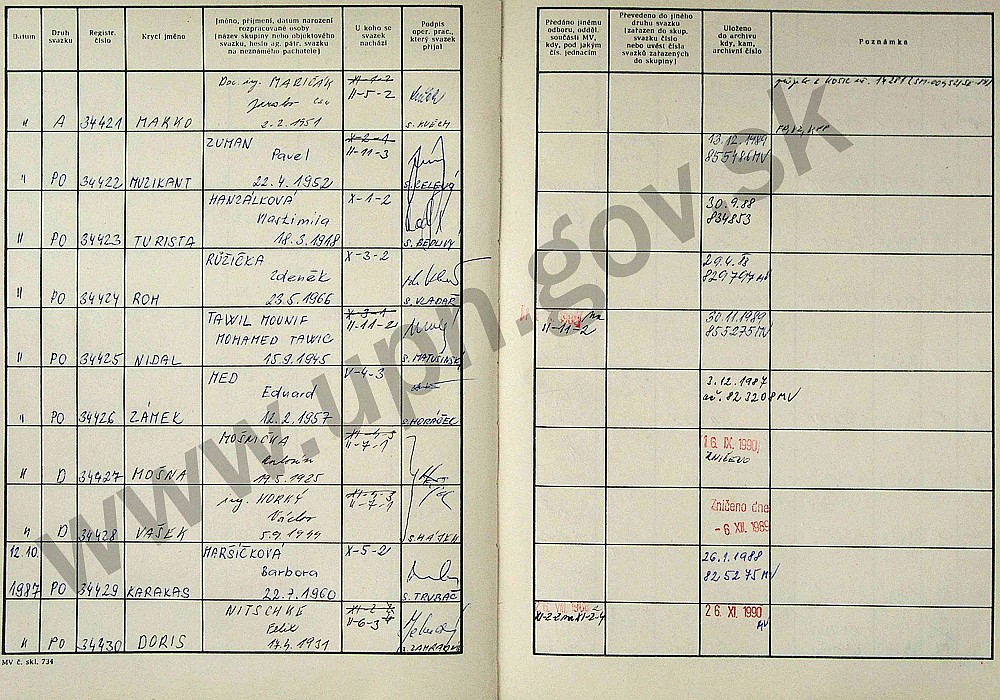 Datum
Druh svazku
Registr. číslo
Krycí jméno
Jméno, příjmení, datum narození
rozpracované osoby
(název skupiny nebo objektového
svazku, heslo ag. pátr. svazku
na neznámého pachatele)
U koho se
svazek
nachází
Podpis
oper. prac.,
který svazek
přijal
Předáno jinému
odboru, odděl.
součásti MV,
kdy, pod jakým
čís. jednacím
Převedeno do jiného
druhu svazku
(zařazen do skup.
svazku číslo
nebo uvést čísla
svazků zařazených
do skupiny)
Uloženo
do archivu
kdy, kam,
archivní číslo
Poznámka
Doc. ing. MARIČÁK
2.2.1951
XI-1-2
II-5-2
" A 34421 MARKO
ZUMAN
Pavel
22.4.1952
X-2-1
II-11-3
" PO 34422 MUZIKANT
S. ZELENÝ
13.12.1989
855486 MV
HANZÁLKOVÁ
Vlastimila
18.3.1918
X-1-2
" PO 34423 TURISTA
S. BEDLIVÝ
30.9.88
834853
RŮŽIČKA
Zdeněk
23.5.1966
X-3-2
" PO 34424 ROM
S. VLADAŘ
29.4.88
829797 MV
TAWIL MOUNIF
MOHAMED TAWIC
15.9.1945
X-3-1
II-11-2
" PO 34425 NIDAL
S. MATUŠINSKÝ
II-11-2
30.11.1989
855275 MV
MED
Eduard
12.2.1957
V-4-3
" PO 34426 ZÁMEK
S. HORÁČEK
3.12.1987
ař. 823208 MV
MOŠNIČKA
Antonín
19.5.1925
II-7-1
" D 34427 MOŠNA
16. IX. 1990
ZNIČENO
ing. HORKÝ
Václav
5.9.1944
XI-5-3
II-7-1
" D 34428 VAŠEK
S. HÁJEK
Zničeno dne
- 6 XII. 1989
12.10.
1987 PO 34429 KARAKAS
MARŠÍČKOVÁ
Barbora
22.7.1960
X-5-2
S. TRUBAČ
26.1.1988
825275 MV
NITSCHKE
Felix
17.4.1931
II-6-3
" PO 34430 DORIS
S. ZAHRADNÍK
26. XI. 1990
MV
MV č. skl. 734
www.upn.gov.sk